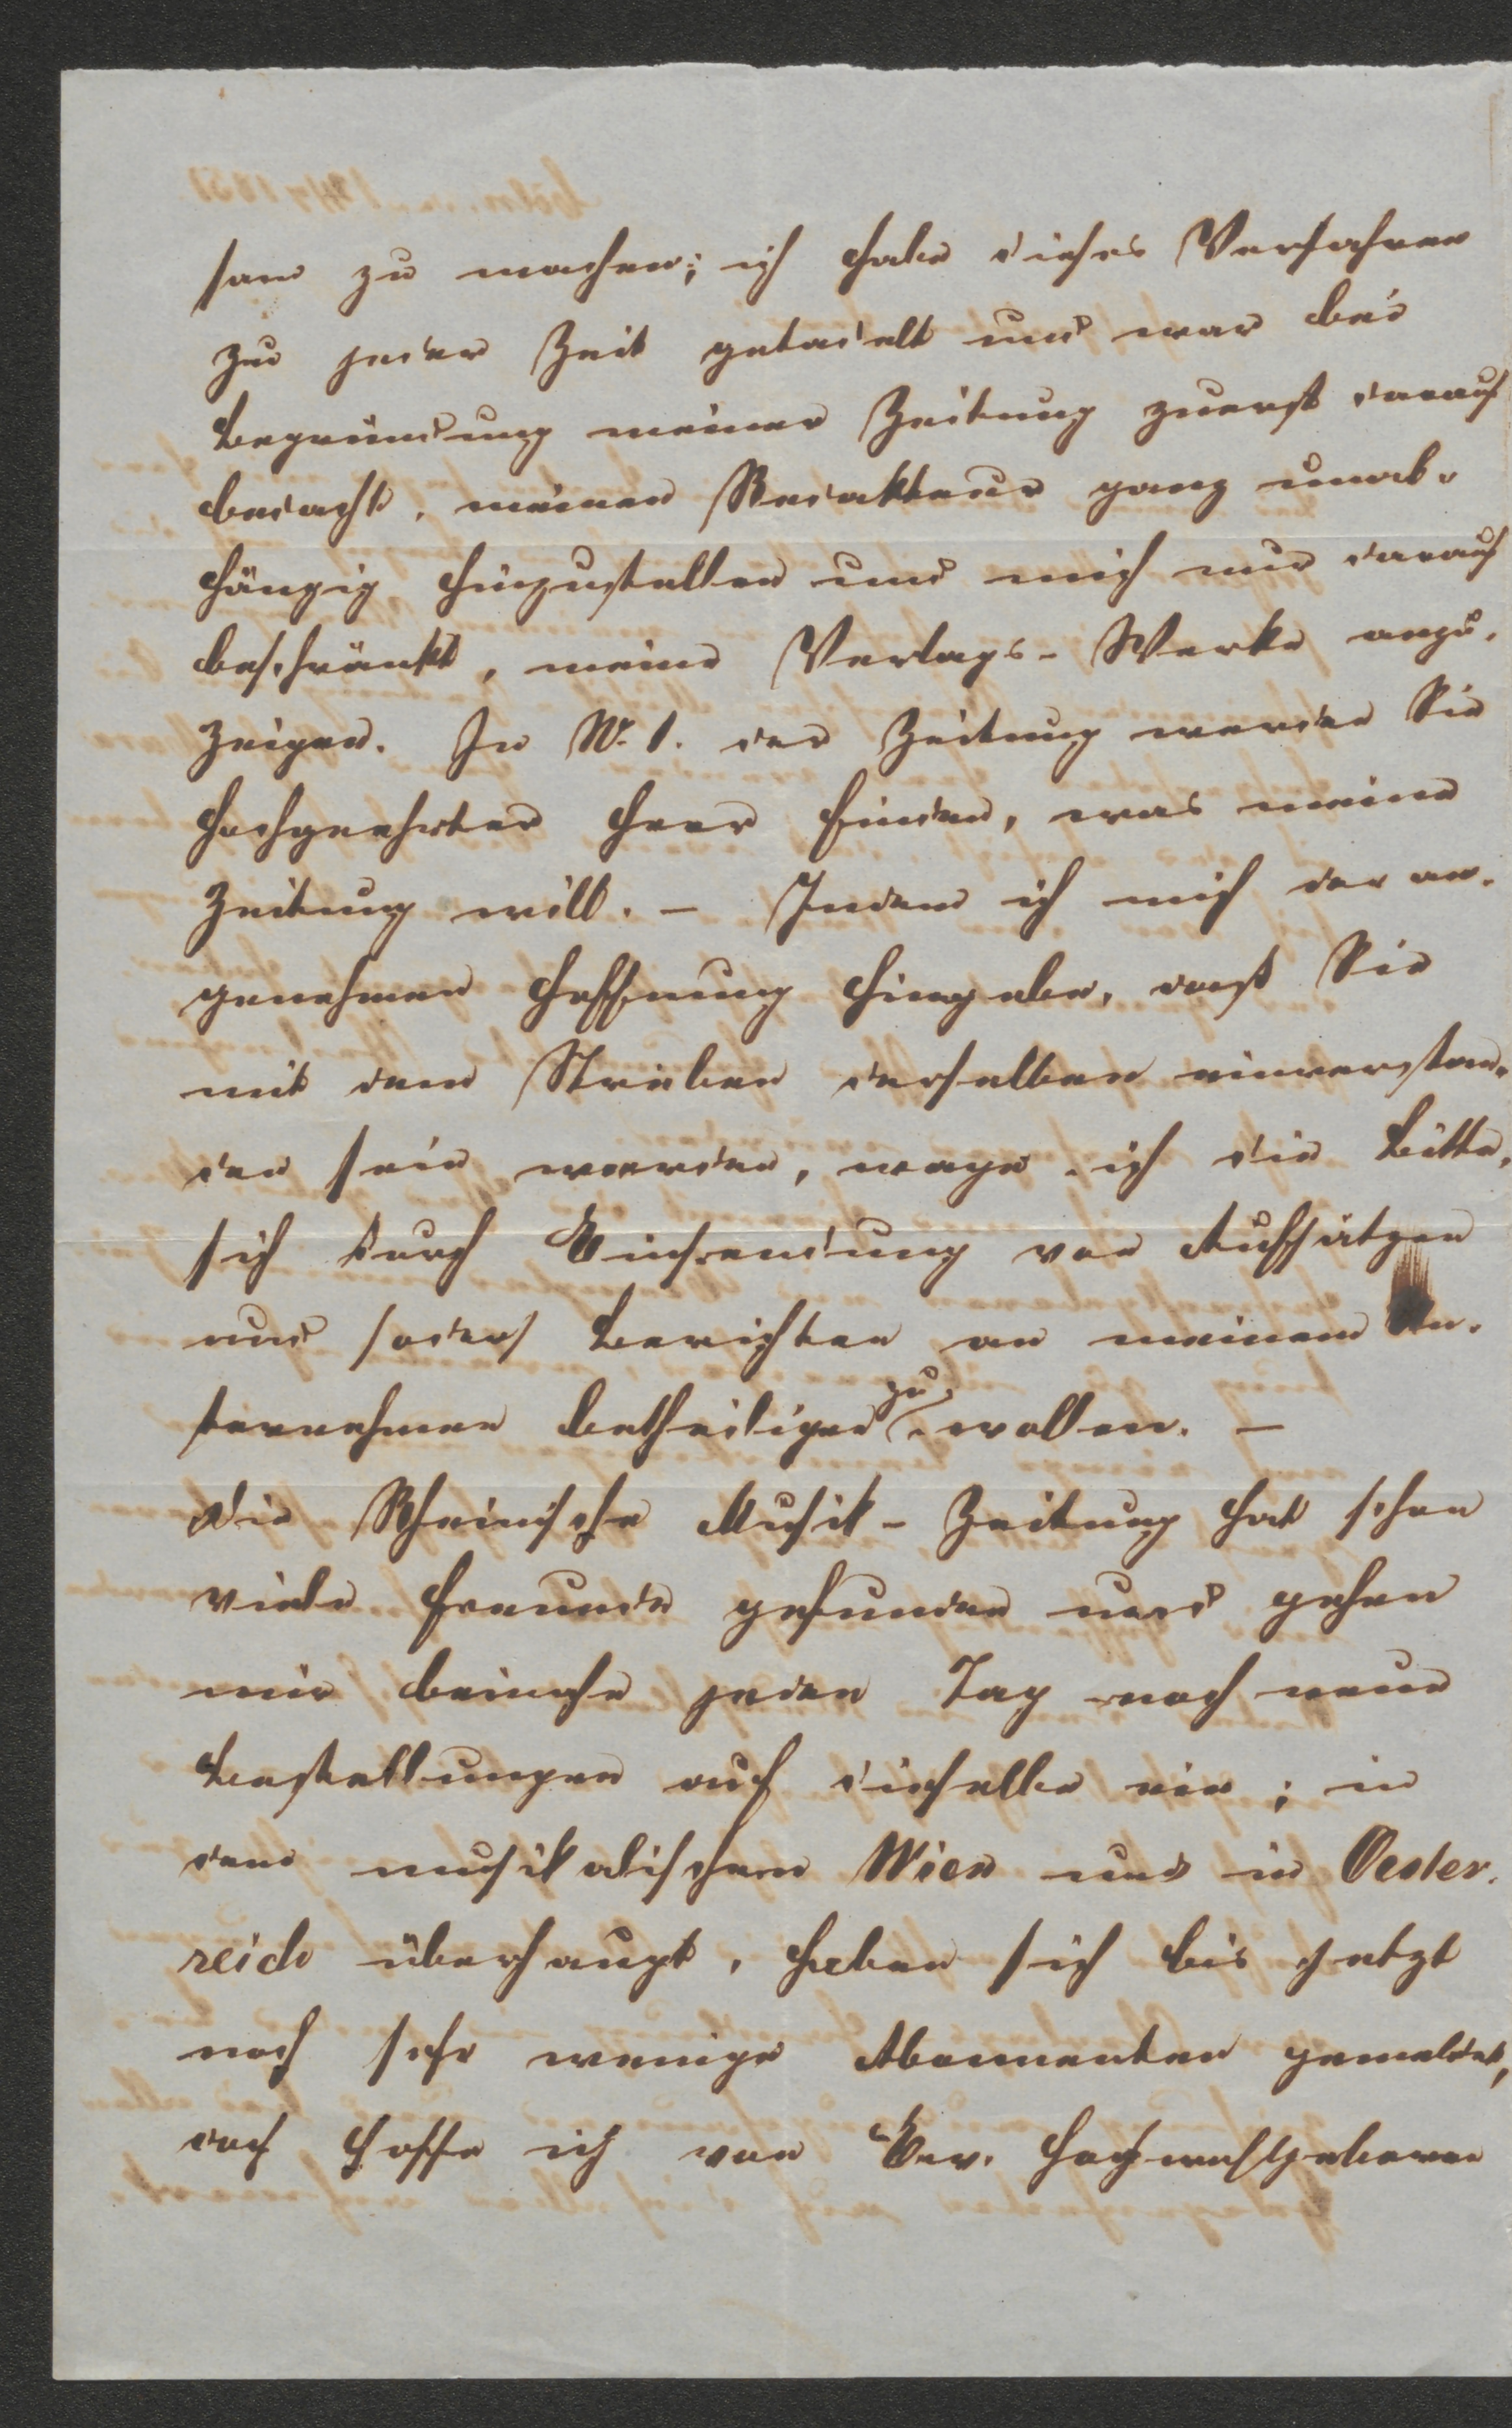 sam zu machen; ich habe dieses Verfahren
zu jeder Zeit getadelt und war bei
Begründung meiner Zeitung zuerst darauf
bedacht, meinen Redakteur ganz unab-
hängig hinzustellen und mich nur darauf
beschränkt, meine Verlags-Werke anzu-
zeigen. In N. 1. der Zeitung werden Sie
hochgeehrter Herr finden, was meine
Zeitung will. – Indem ich mich der an-
genehmen Hoffnung hingebe, daß Sie
mit dem Streben derselben einverstan-
den sein werden, wage ich die Bitte,
sich durch Einsendung von Aufsätzen
und (oder) Berichten an meinem Un-
ternehmen betheiligen zu wollen. –
Die Rheinische Musik-Zeitung hat schon
viele Freunde gefunden und gehen
mir beinahe jeden Tag noch neue
Bestellungen auf dieselbe ein; in
dem musikalischen Wien und in Oester-
reich überhaupt, haben sich bis jetzt
noch sehr wenige Abonnenten gemeldet,
doch hoffe ich von Ew. Hochwohlgeboren